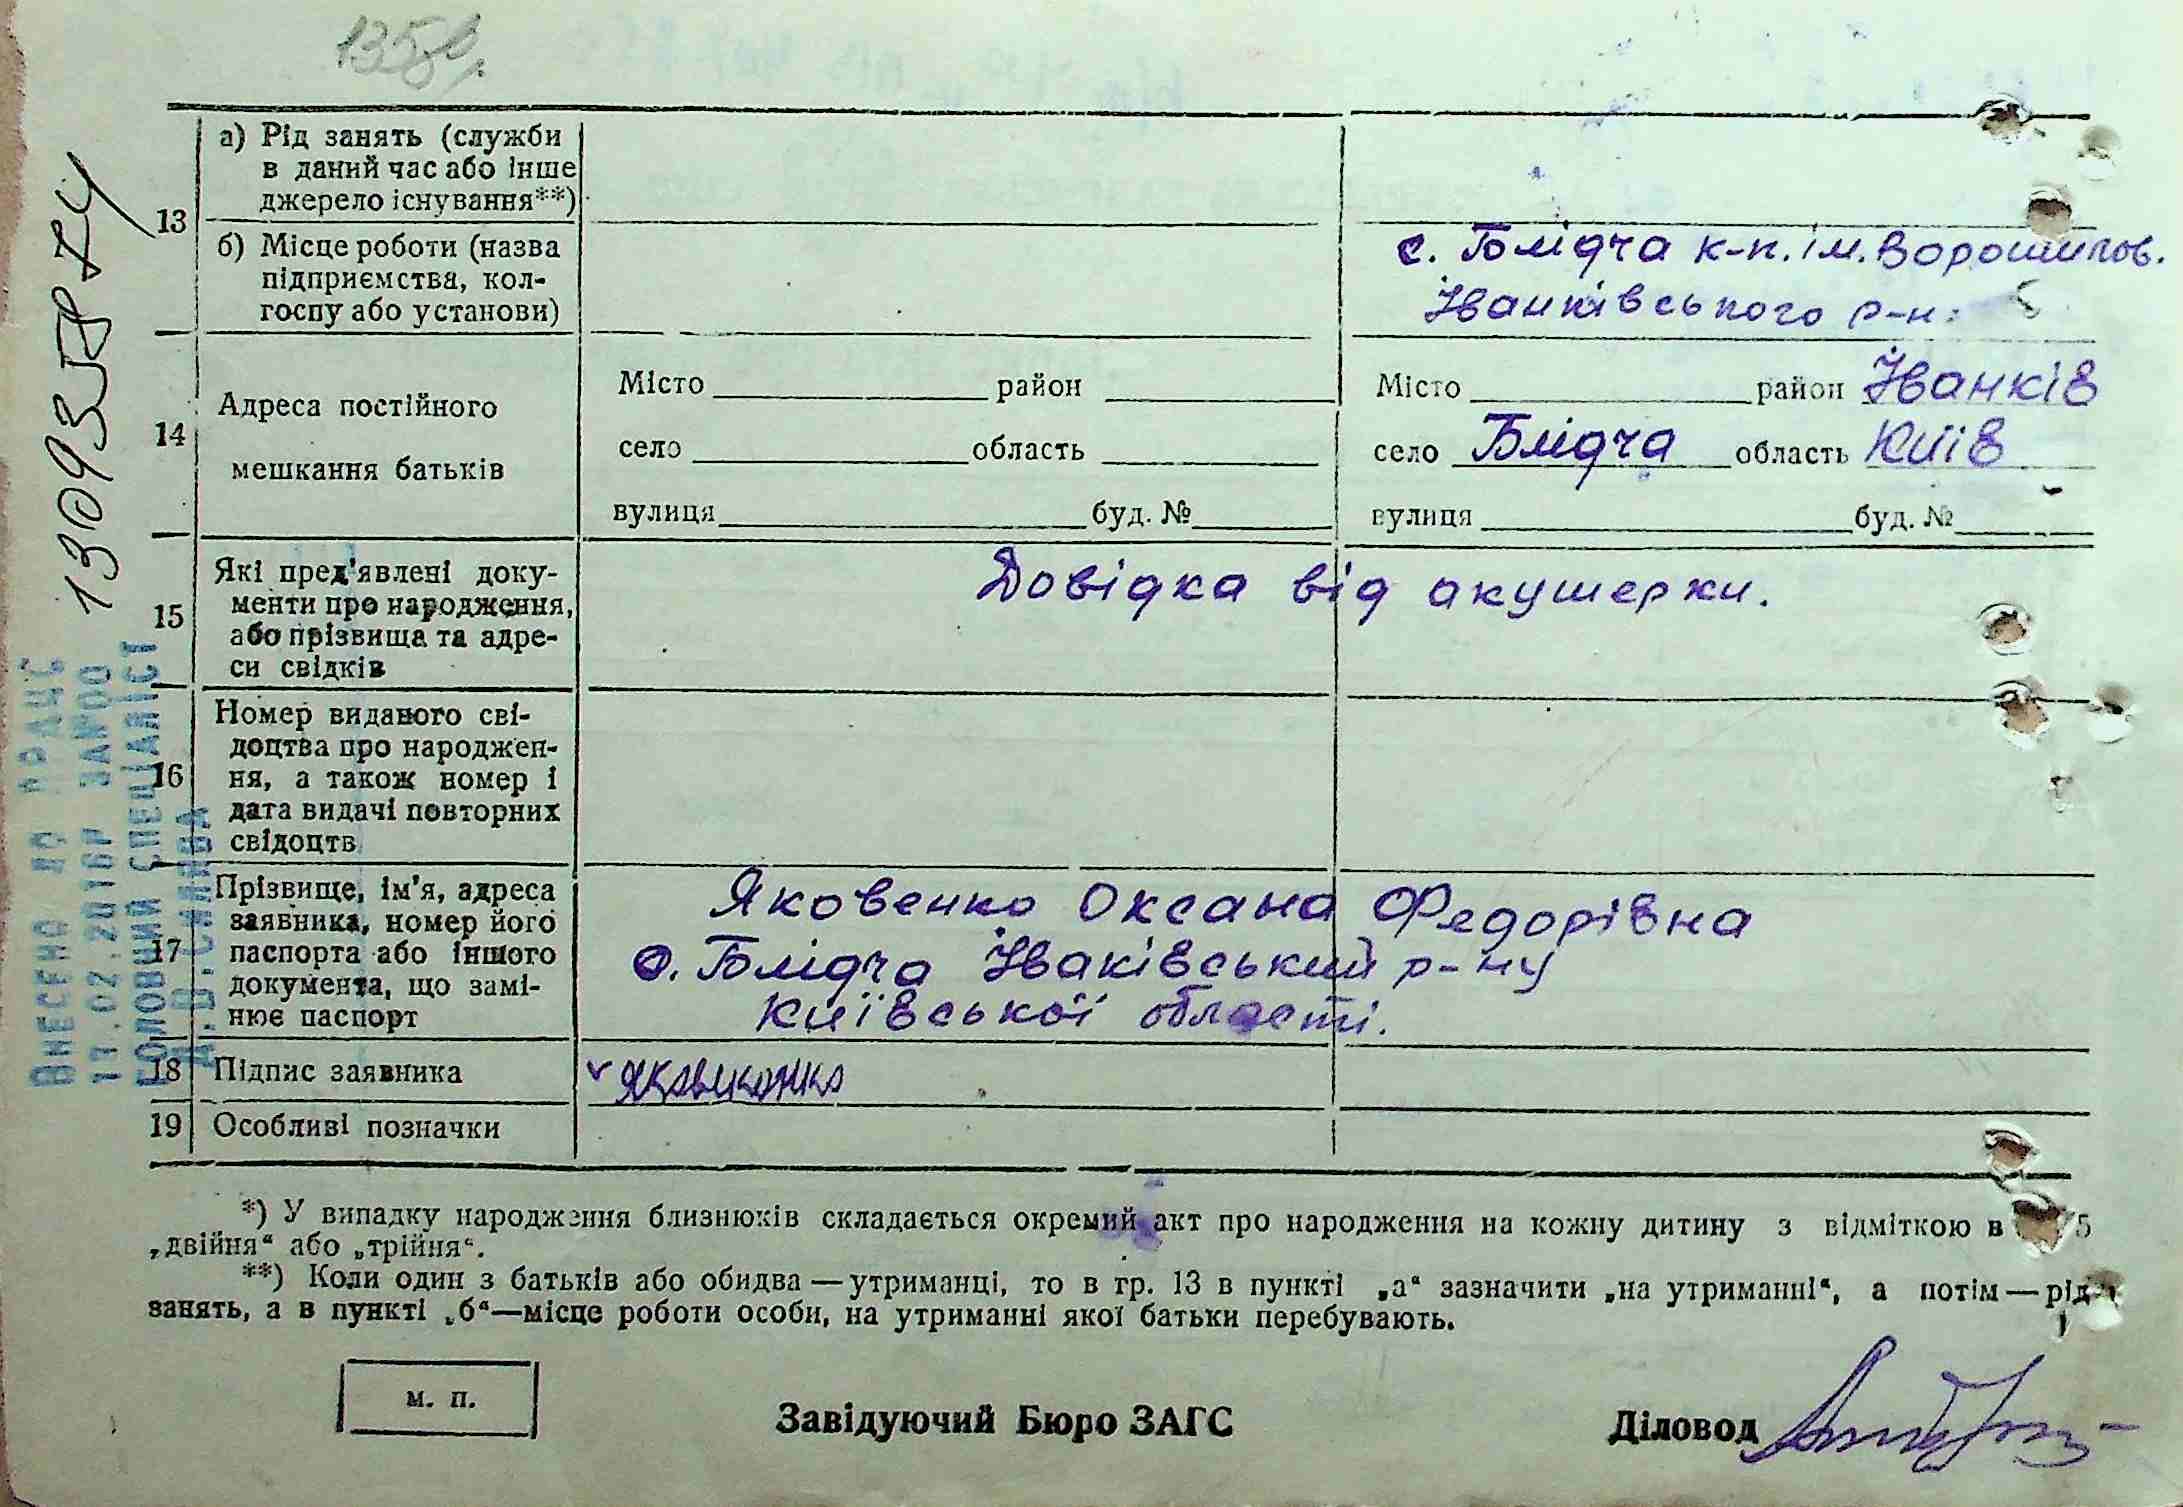 135
13
а) Рід занять (служби
в даний час або інше
джерело існування**)
б) Місце роботи (назва
підприємства, кол-
госпу або установи)
с. Блідча к-п. ім. Ворошилов.
Іванківського р-н.
14
Адреса постійного
мешкання батьків
Місто район
село область
вулиця буд. №
Місто район Іванків
село Блідча область Київ
вулиця буд. №
15
Які пред'явлені доку-
менти про народження,
або прізвища та адре-
си свідків
Довідка від акушерки.
16
Номер виданого сві-
доцтва про народжен-
ня, а також номер і
дата видачі повторних
свідоцтв
17
Прізвище, ім'я, адреса
заявника, номер його
паспорта або іншого
документа, що замі-
нює паспорт
Яковенко Оксана Федорівна
с. Блідча Іваківський р-ну
Київської області.
18
Підпис заявника
19
Особливі позначки
*) У випадку народження близнюків складається окремий акт про народження на кожну дитину з відміткою в 5
„двійня“ або „трійня“.
**) Коли один з батьків або обидва — утриманці, то в гр. 13 в пункті „а“ зазначити „на утриманні“, а потім — рід
занять, а в пункті „б“—місце роботи особи, на утриманні якої батьки перебувають.
м. п.
Завідуючий Бюро ЗАГС
Діловод
130935874
Внесено до ДРАЦС
17.02.2016р ЗАКРО
Головний спеціаліст